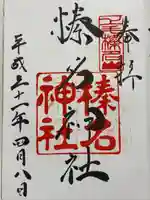 奉拝
榛名神社
榛名
神社
平成三十一年四月八日